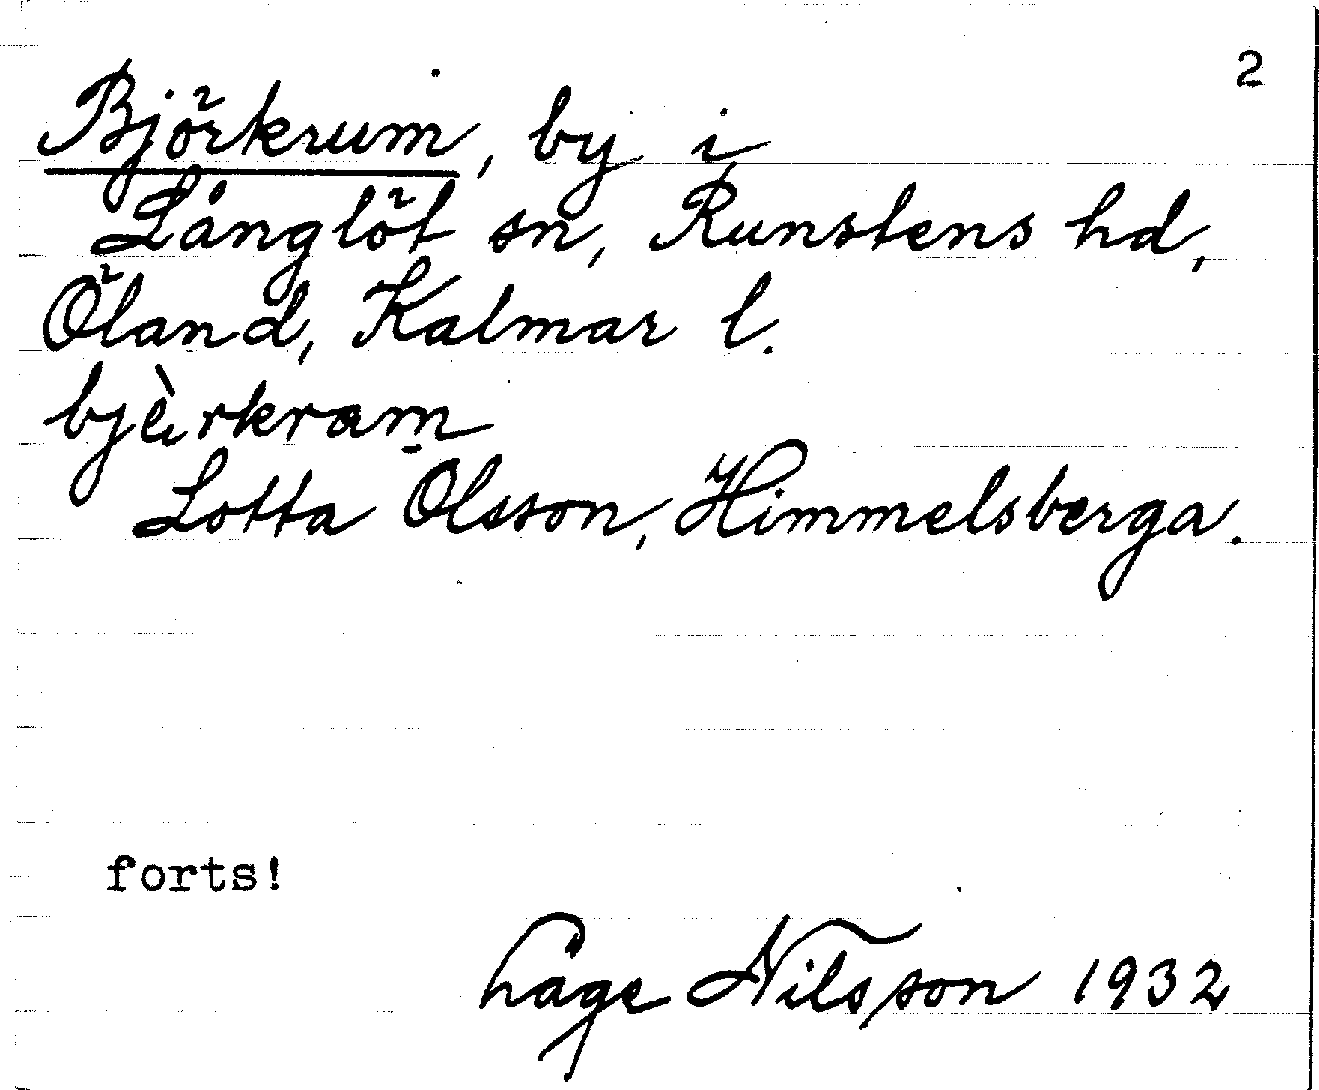 2
Björkrum, by i
Långlöt sn, Runstens hd,
Öland, Kalmar l.
Lotta Olsson, Himmelsberga.
forts!
Nilsson 1932